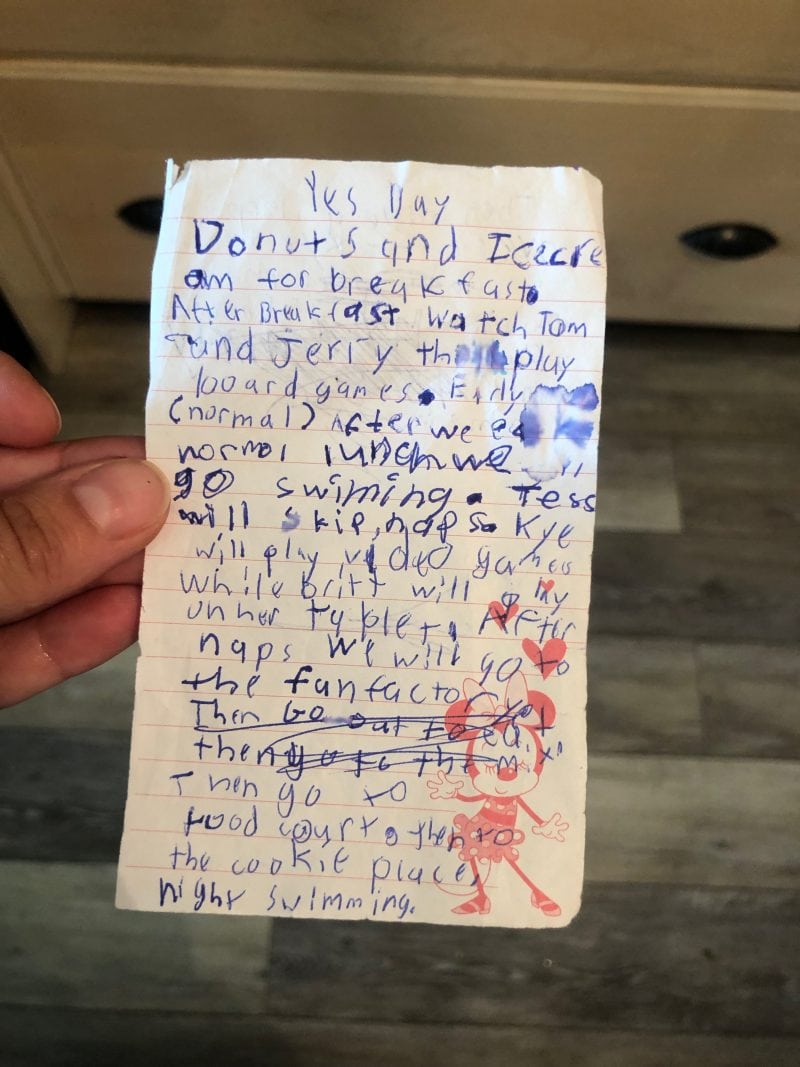 Yes Day
Donuts and Icecre
am for breakfast.
After Breakfast Watch Tom
and Jerry play
board games.
(normal) After we
normal lunch we
go swiming. Tess
will skip naps. Kye
will play video games
while britt will play
on her tyblet. After
naps We will go to
the fun factory
Then Go out to eat
then go to the
Then go to
food court, then to
the cookie place,
night swimming.